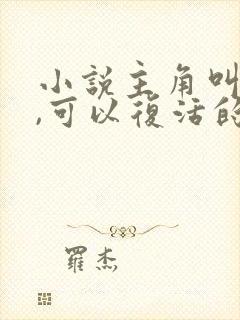 小說主角叫
,可以復活的
羅杰